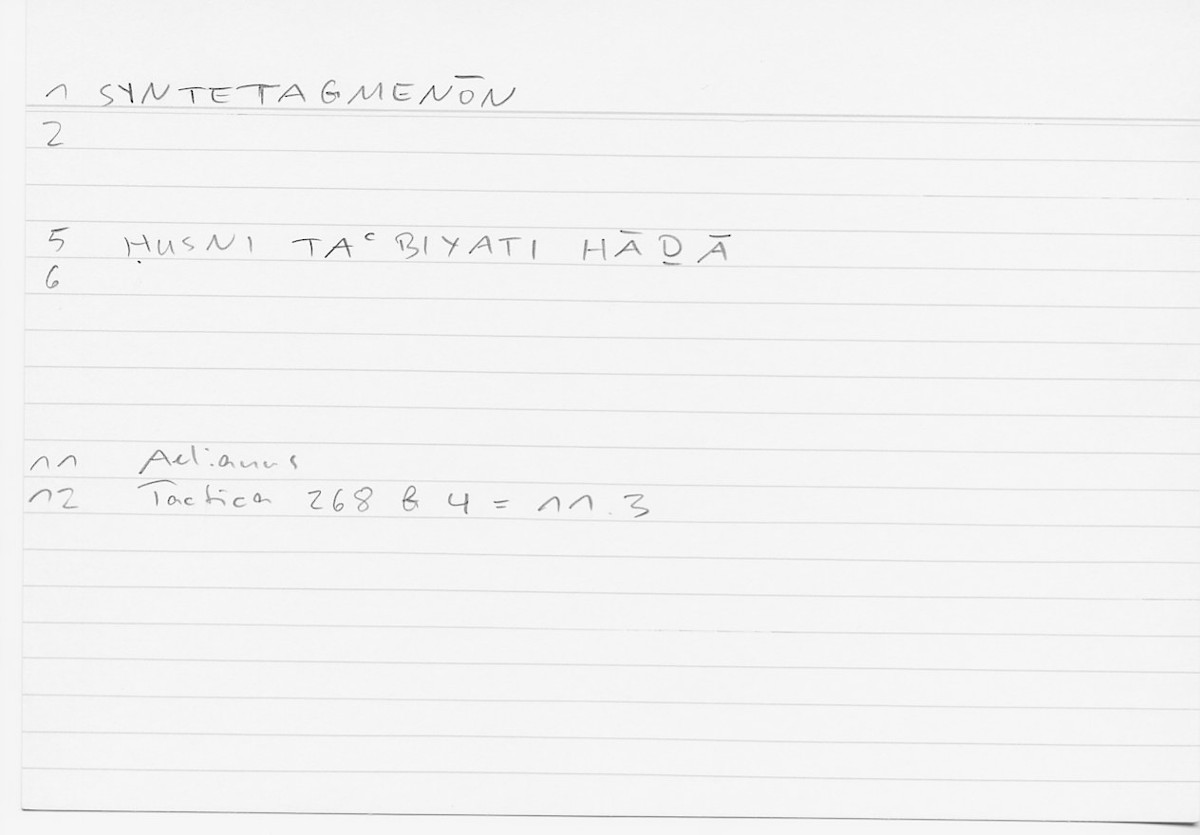 1 SYNTETAGMENŌN
2
5 ḤUSNI TAʿBIYATI HĀḎĀ
6
11 Aelianus
12 Tactica 268 b 4 = 11.3